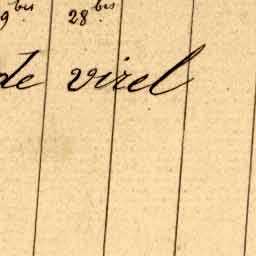 9 bis 28 bis
de virel